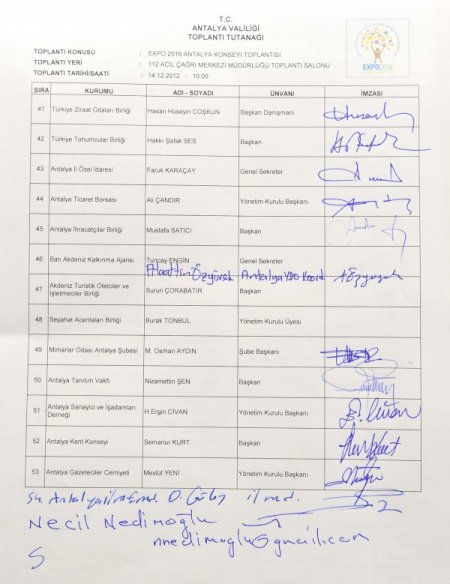 T.C.
ANTALYA VALİLİĞİ
TOPLANTI TUTANAĞI
EXPO2016
TOPLANTI KONUSU : EXPO 2016 ANTALYA KONSEYİ TOPLANTISI
TOPLANTI YERİ : 112 ACİL ÇAĞRI MERKEZİ MÜDÜRLÜĞÜ TOPLANTI SALONU
TOPLANTI TARİHİ/SAATİ : 14.12.2012 - 10:00
SIRA KURUMU ADI - SOYADI ÜNVANI İMZASI
41 Türkiye Ziraat Odaları Birliği Hasan Hüseyin COŞKUN Başkan Danışmanı
42 Türkiye Tohumcular Birliği Hakkı Şafak SES Başkan
43 Antalya İl Özel İdaresi Faruk KARAÇAY Genel Sekreter
44 Antalya Ticaret Borsası Ali ÇANDIR Yönetim Kurulu Başkanı
45 Antalya İhracatçılar Birliği Mustafa SATICI Başkan
46 Batı Akdeniz Kalkınma Ajansı Tuncay ENGİN Genel Sekreter
Alaattin Özyürek Antalya YDO Koord
47 Akdeniz Turistik Otelciler ve İşletmeciler Birliği Sururi ÇORABATIR Başkan
48 Seyahat Acentaları Birliği Burak TONBUL Yönetim Kurulu Üyesi
49 Mimarlar Odası Antalya Şubesi M. Osman AYDIN Şube Başkanı
50 Antalya Tanıtım Vakfı Nizamettin ŞEN Başkan
51 Antalya Sanayici ve İşadamları Derneği H.Ergin CİVAN Yönetim Kurulu Başkanı
52 Antalya Kent Konseyi Semanur KURT Başkan
53 Antalya Gazeteciler Cemiyeti Mevlüt YENİ Yönetim Kurulu Başkanı
54 Antalya
Necil Nedimoğlu
nnedimoglu@gmail.com